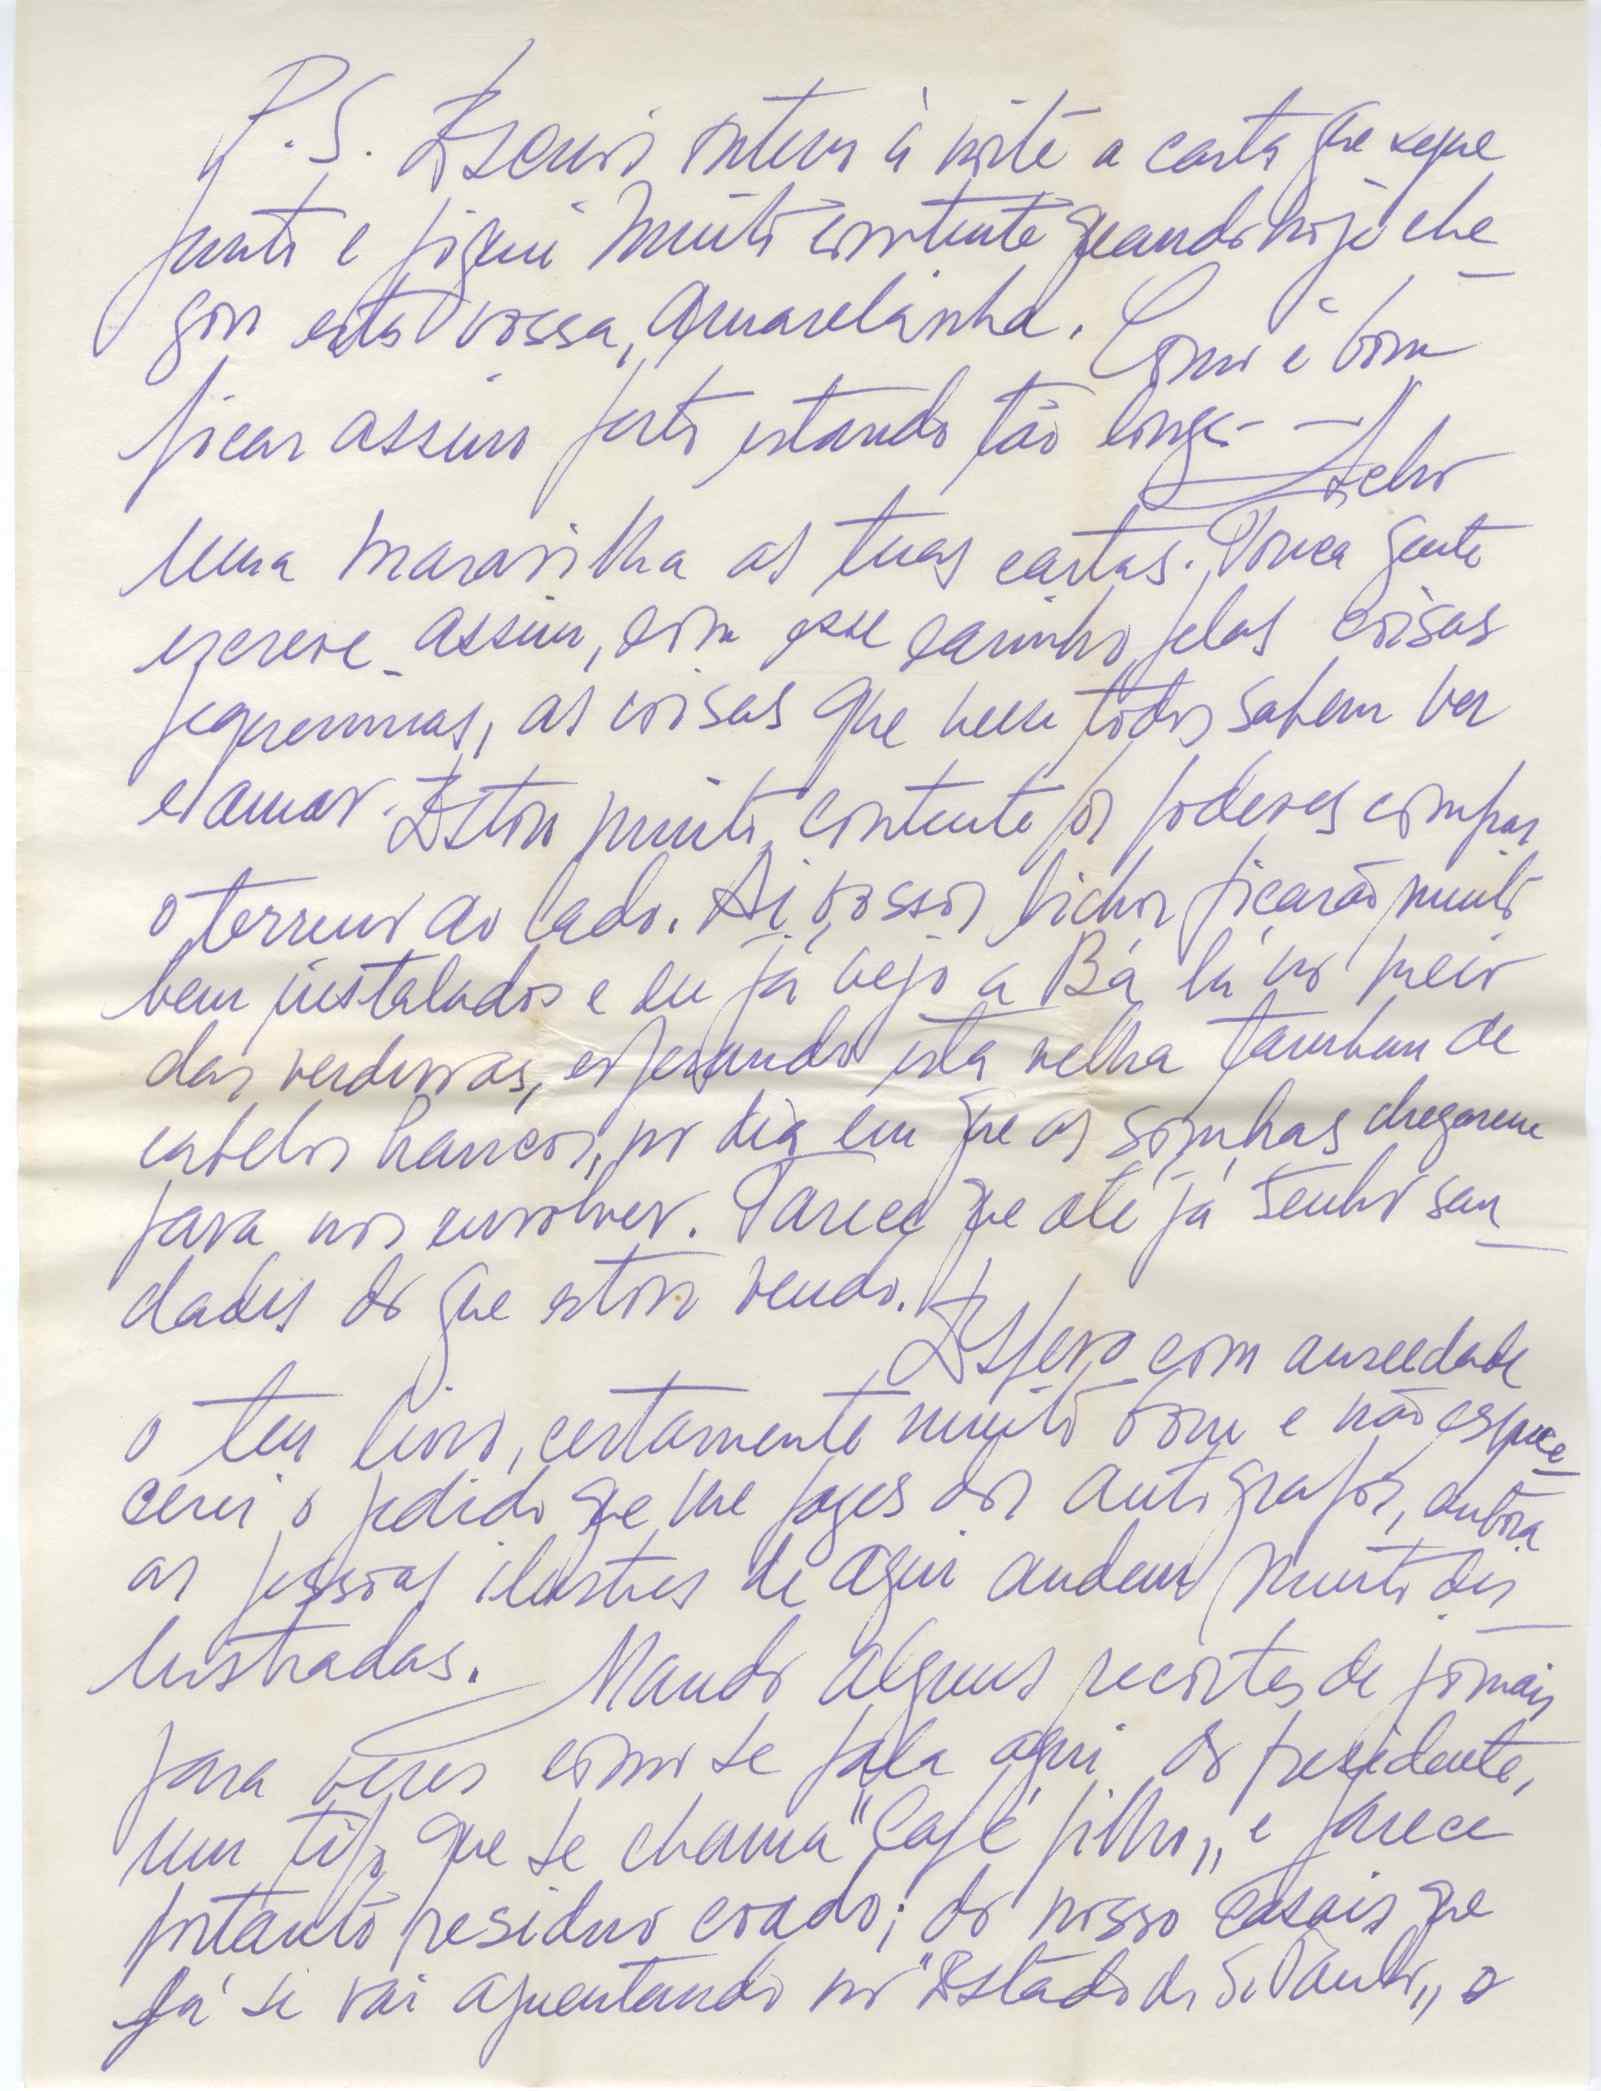 P.S. Escrevi ontem à noite a carta que segue
junto e fiquei muito contente quando hoje che-
gou esta vossa, amarelinha. Como é bom
ficar assim perto estando tão longe. — Acho
uma maravilha as tuas cartas. Pouca gente
escreve assim, com esse carinho pelas coisas
pequeninas, as coisas que nem todos sabem ver
e amar. Estou muito contente por poderes comprar
o terreno ao lado. Aí, vossos bichos ficarão muito
bem instalados e eu já vejo a Bá lá no meio
das verduras, esperando esta velha tambem de
cabelos brancos, no dia em que as sombras chegarem
para nos envolver. Parece que até já tenho sau-
dades do que estou vendo. Espero com anciedade
o teu livro, certamente muito bom e não esque-
cerei o pedido que me fazes dos autografos, embora
as pessoas ilustres de aqui andem muito des-
lustradas. Mando alguns recortes de jornais
para veres como se fala aqui do presidente,
um tipo que se chama "Café filho" e parece
portanto residuo coado; do nosso Casais que
já se vai aguentando no "Estado de S. Paulo", o